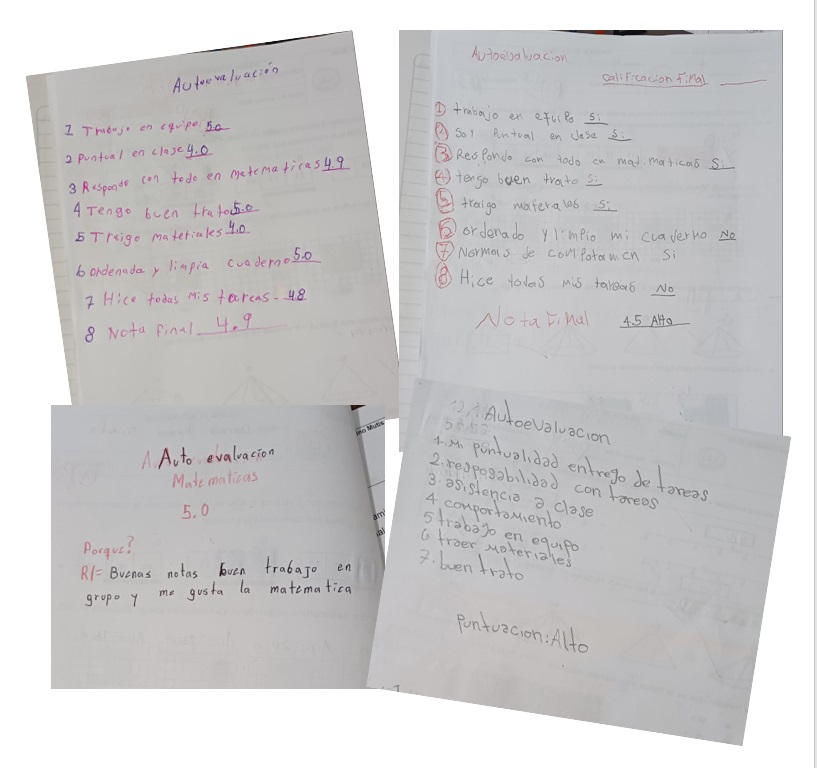 Autoevaluación
1 Trabajo en equipo: 5.0
2 Puntual en clase 4.0
3 Respondo con todo en matematicas 4.9
4 Tengo buen trato 5.0
5 Traigo materiales 4.0
6 ordenada y limpia cuaderno 5.0
7 Hice todas mis tareas- 4.8
8 Nota final 4.9
Autoevaluacion
calificacion Final
1 trabajo en equipo si
2 Soy Puntual en clase si
3 Respondo con todo en matimaticas Si
4 tengo buen trato si
5 traigo materales si
6 ordenado y limpio mi cuaderno No
7 Normas de compotamen Si
8 Hice todas mis tareas No
Nota Final 4.5 Alto
Auto evaluacion
Matematicas
5.0
Porque?
R/= Buenas notas buen trabajo en
grupo y me gusta la matematica
Autoevaluacion
1. Mi puntualidad entrego de tareas
2. resposabilidad con tareas
3. asistencia a clase
4 comportamiento
5 trabajo en equipo
6 traer materiales
7. buen trato
Puntuacion: Alto